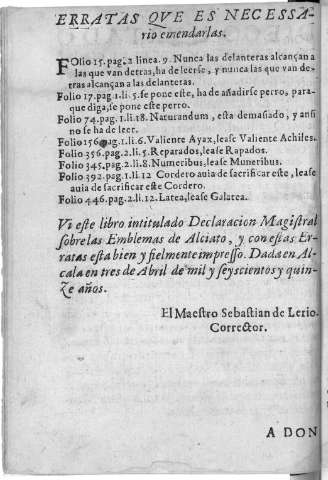 ERRATAS QVE ES NECESSA-
rio emendarlas.
FOlio 15. pag. 2 linea. 9. Nunca las delanteras alcançan a
las que van detras, ha de leerse, y nunca las que van de-
tras alcançan a las delanteras.
Folio 17. pag. 1. li. 5. se pone este, ha de añadirse perro, para-
que diga, se pone este perro.
Folio 74. pag. 1. li. 18. Naturandum, esta demasiado, y ansi
no se ha de leer.
Folio 156 pag. 1. li. 6. Valiente Ayax, lease Valiente Achiles.
Folio 356. pag. 2. li. 5. Reparados, lease Rapados.
Folio 345. pag. 2. li. 8. Numeribus, lease Muneribus.
Folio 392. pag. 1. li. 12 Cordero auia de sacrificar este, lease
auia de sacrificar este Cordero.
Folio 446. pag. 2. li. 12. Latea, lease Galatea.
Vi este libro intitulado Declaracion Magistral
sobre las Emblemas de Alciato, y con estas Er-
ratas esta bien y fielmente impresso. Dada en Al-
cala en tres de Abril de mil y seyscientos y quin-
ze años.
El Maestro Sebastian de Lerio.
Corrector.
A DON